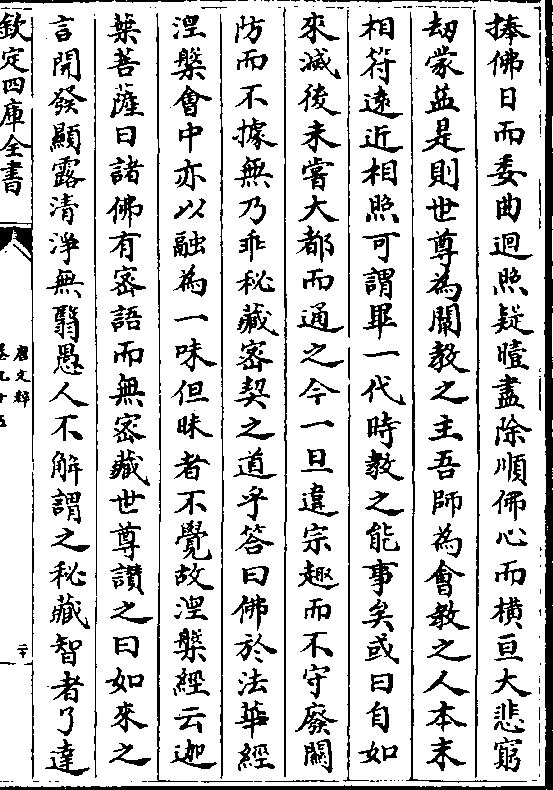 捧佛日而委曲迴照疑曀盡除順佛心而横亘大悲窮
刼蒙益是則世尊為闡教之主吾師為會教之人本末
相符遠近相照可謂畢一代時教之能事矣或曰自如
來滅後未嘗大都而通之今一旦違宗趣而不守廢關
防而不據無乃乖秘藏密契之道乎答曰佛於法華經
涅槃會中亦以融為一味但昧者不覺故涅槃經云迦
葉菩薩曰諸佛有密語而無密藏世尊讃之曰如來之
言開發顯露清淨無翳愚人不解謂之秘藏智者了達
欽定四庫全書
唐文粹
卷九十五
二十